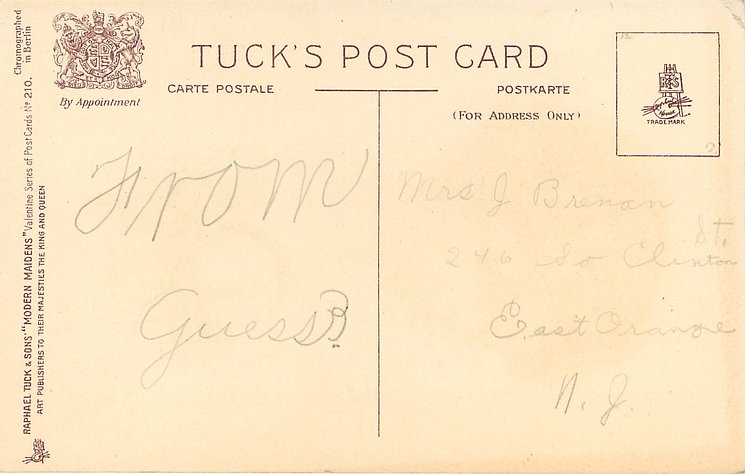 Chromographed
in Berlin
RAPHAEL TUCK & SONS' "MODERN MAIDENS" Valentine Series of Post Cards Nº 210.
ART PUBLISHERS TO THEIR MAJESTIES THE KING AND QUEEN
By Appointment
TUCK'S POST CARD
CARTE POSTALE
POSTKARTE
(FOR ADDRESS ONLY)
TRADE MARK
From
Guess?
Mrs J Brenan
246 So Clinton St.
East Orange
N. J.